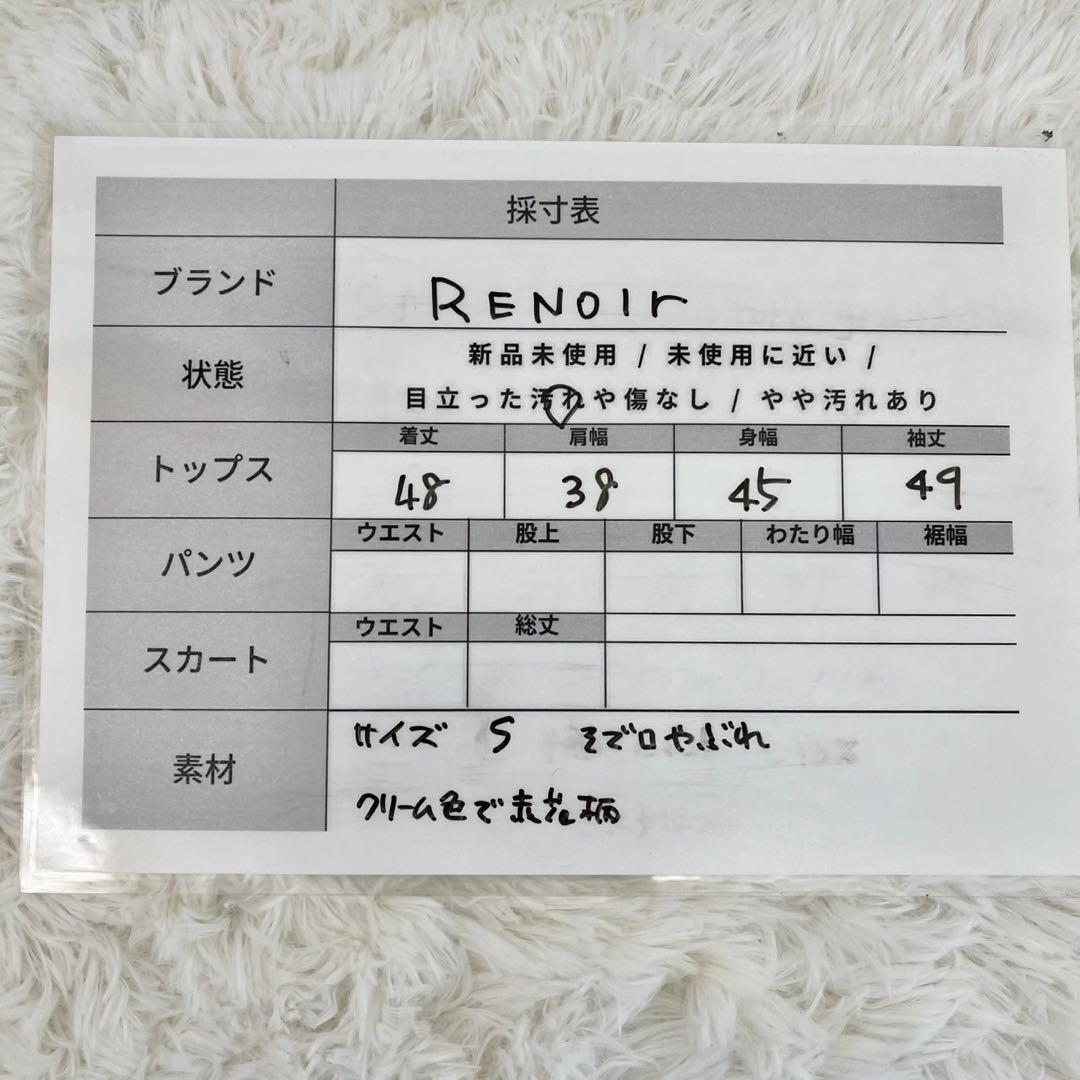 採寸表
ブランド RENOIr
状態 新品未使用 / 未使用に近い /
目立った汚れや傷なし / やや汚れあり
トップス 着丈 肩幅 身幅 袖丈
48 38 45 49
パンツ ウエスト 股上 股下 わたり幅 裾幅
スカート ウエスト 総丈
素材 サイズ S そで口やぶれ
クリーム色で赤花柄